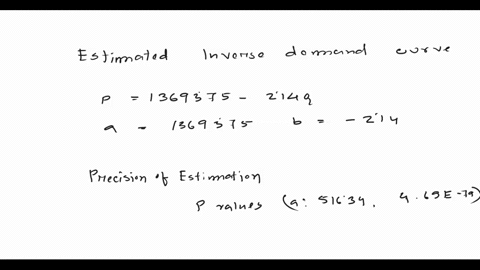 Estimated Inverse demand curve
P = 1369375 - 2.14q
a = 1369375 b = -2.14
Precision of Estimation
P values (a: 51634, 4.69E-79)